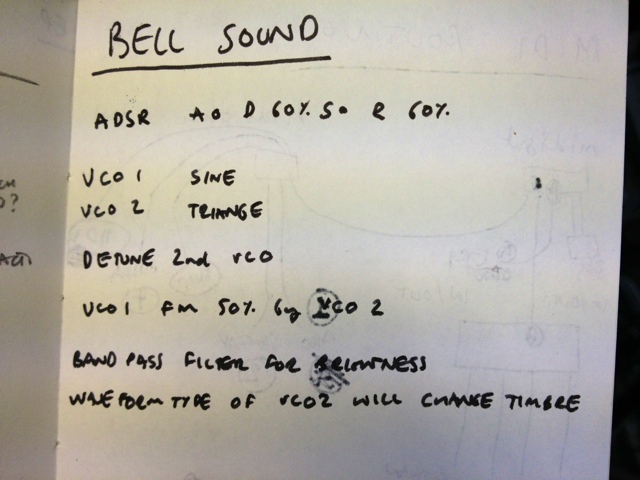 BELL SOUND
ADSR A0 D 60% S0 R 60%
VCO 1 SINE
VCO 2 TRIANGE
DETUNE 2nd VCO
VCO1 FM 50% by VCO 2
BAND PASS FILTER FOR BRIGHTNESS
WAVEFORM TYPE OF VCO2 WILL CHANGE TIMBRE